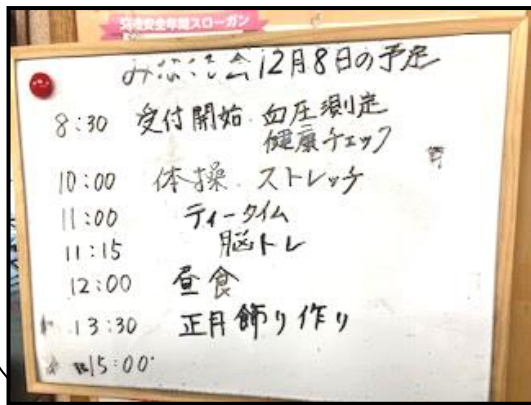 交通安全年間スローガン
会12月8日の予定
8:30 受付開始 血圧測定
健康チェック
10:00 体操 ストレッチ
11:00 ティータイム
11:15 脳トレ
12:00 昼食
13:30 正月飾り作り
15:00